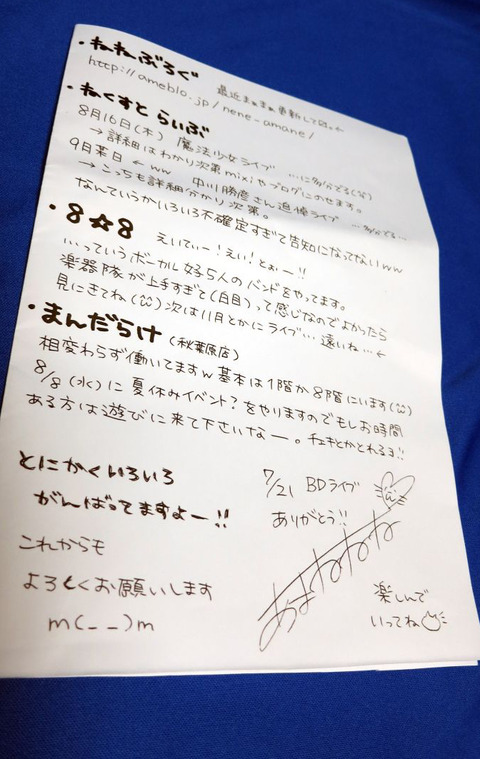 ・ねねぶろぐ 最近まぁまぁ更新してます。←
http://ameblo.jp/nene-amane/
・ねくすと らいぶ
8月16日(木) 魔法少女ライブ …に多分でる(笑)
→詳細はわかり次第mixiやブログにのせます。
9月某日 ←ww 中川勝彦さん追悼ライブ …多分でる…
→こっちも詳細分かり次第。
なんていうかいろいろ不確定すぎて告知になってないww
・8☆8 えいてぃー！えい！とぉー！！
…っていうボーカル女子5人のバンドをやってます。
楽器隊が上手すぎて(白目)って感じなのでよかったら
見にきてね(笑)次は11月とかにライブ…遠いね…←
・まんだらけ(秋葉原店)
相変わらず働いてますw基本は1階か8階にいます(笑)
8/8(水)に夏休みイベント？をやりますのでもしお時間
ある方は遊びに来て下さいなー。チェキとかとれるヨ!!
とにかくいろいろ
がんばってますよー!!
これからも
よろしくお願いします
m(_ _)m
7/21 BDライブ
ありがとう!!
あまねねね
楽しんで
いってね